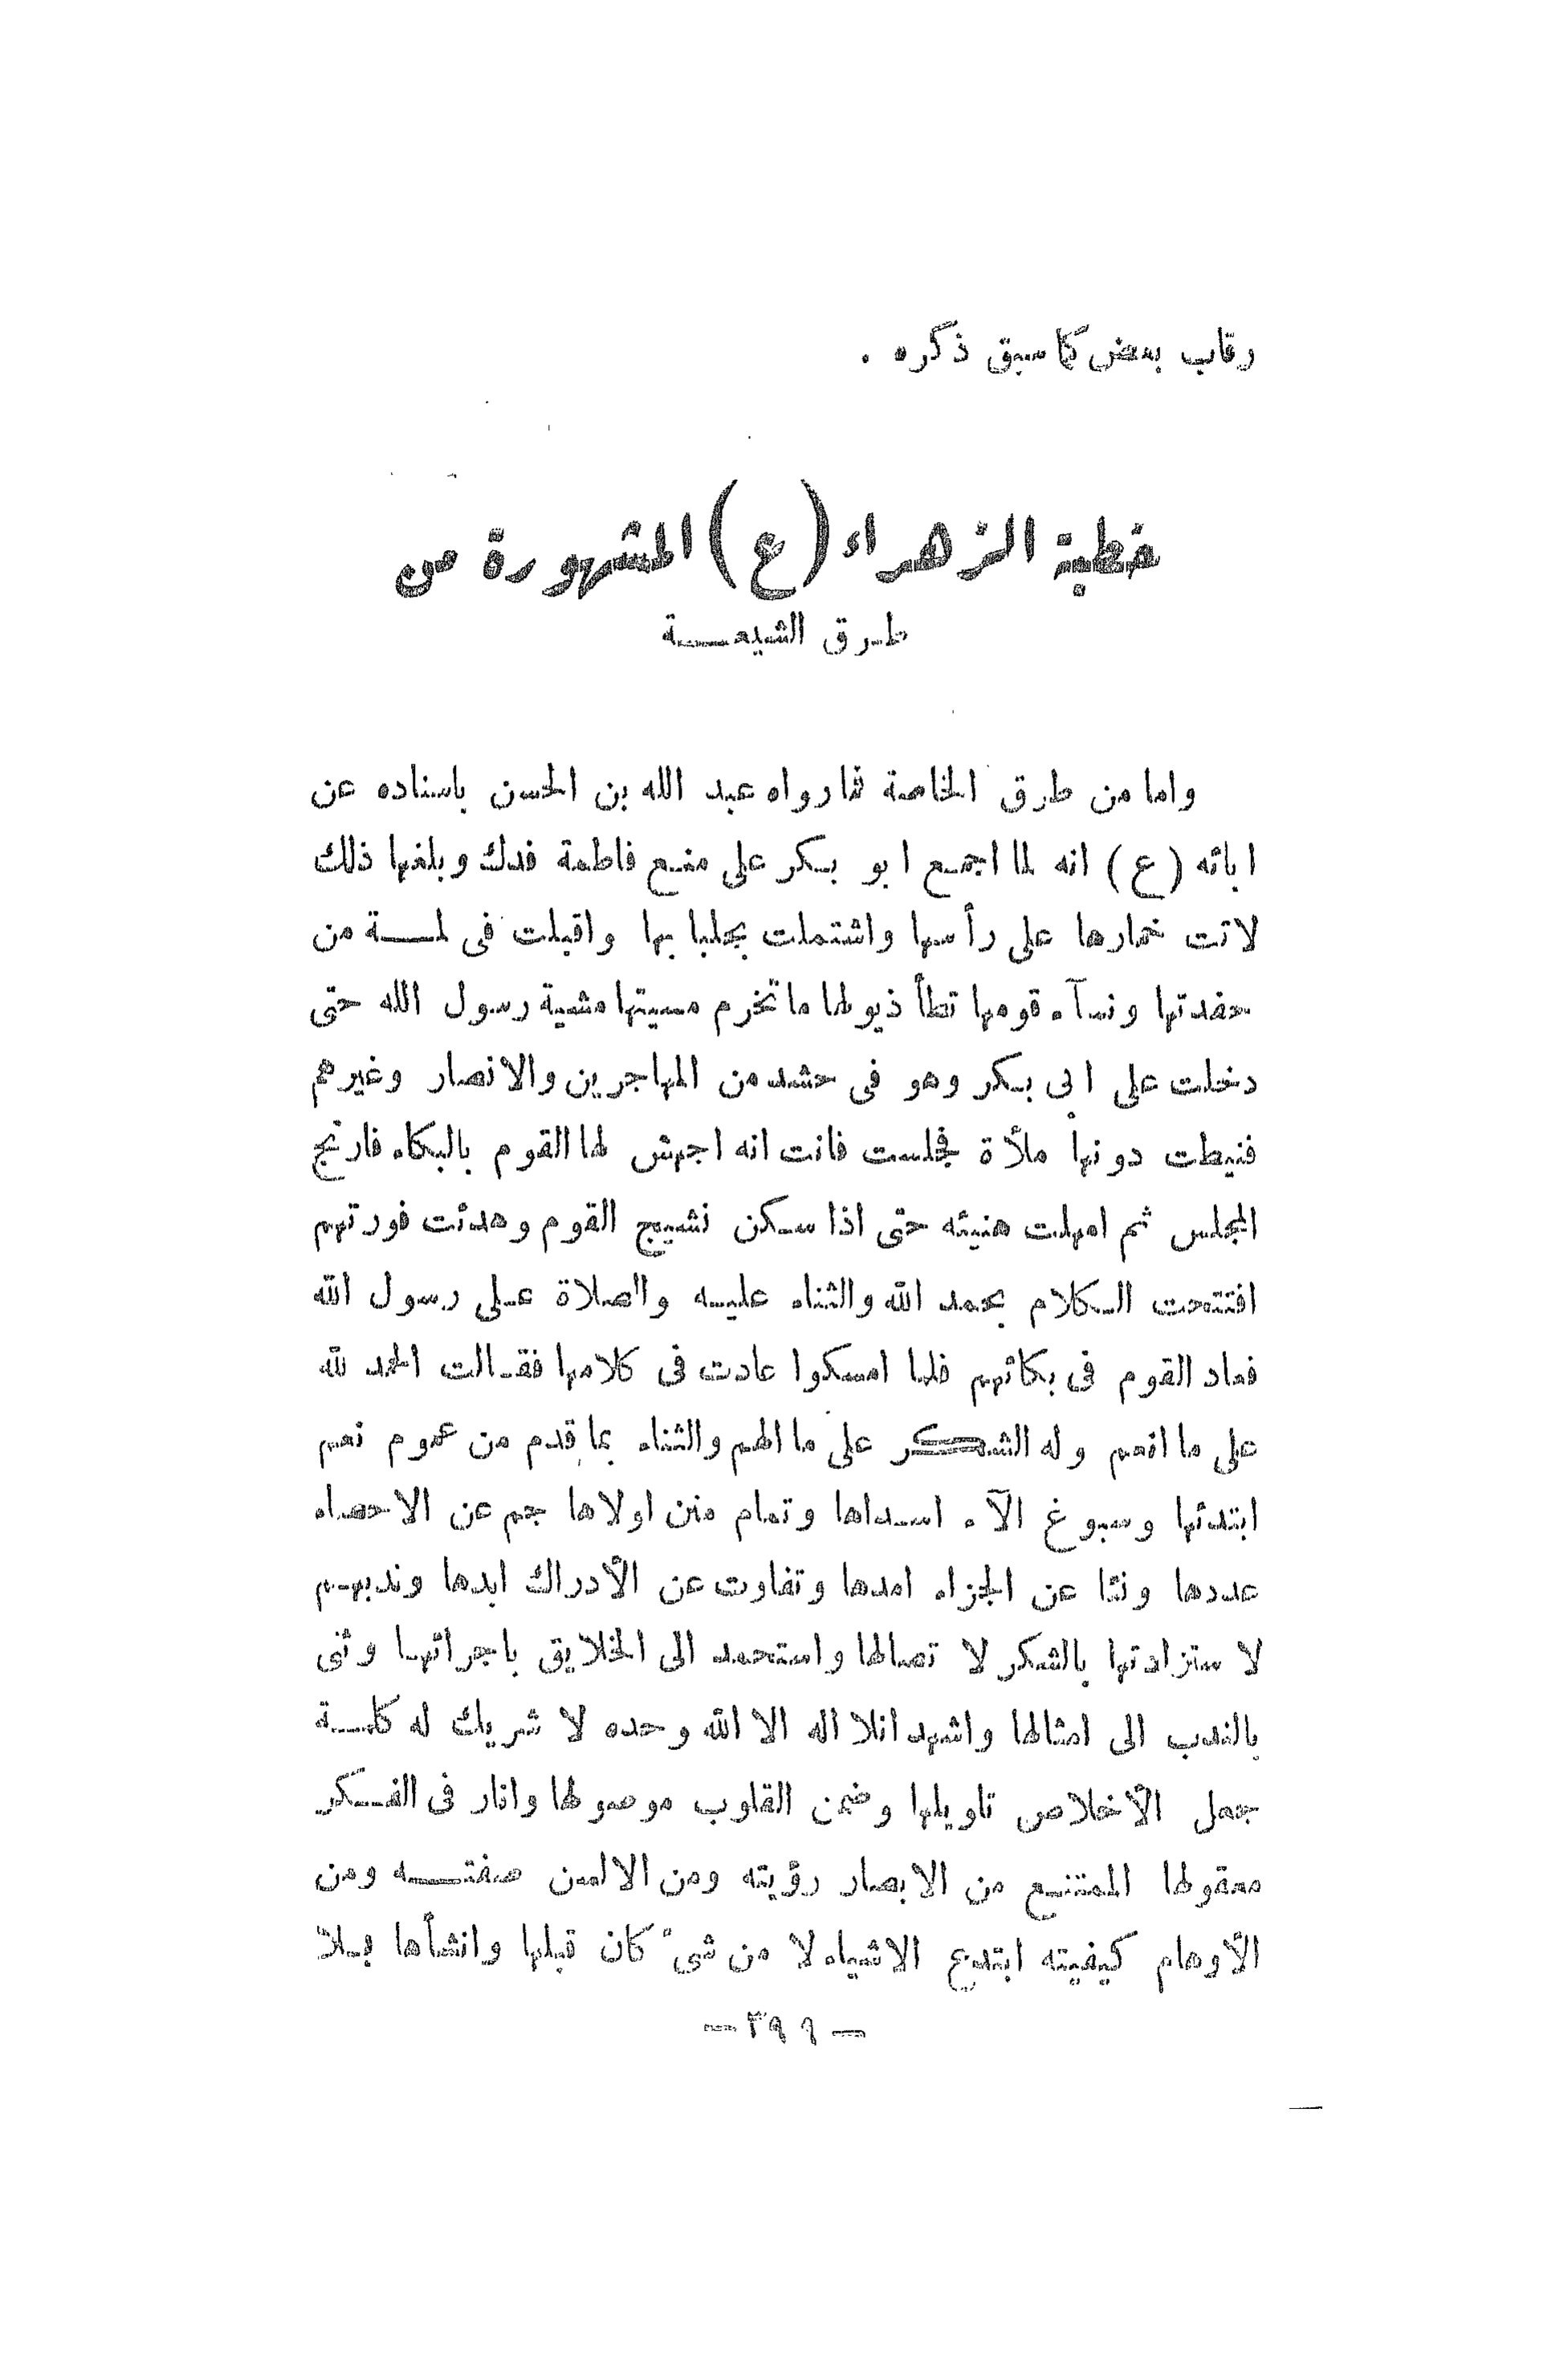 رقاب بعض كما سبق ذكره .
خطبة الزهراء (ع) المشهورة من
طرق الشيعة
واما من طرق الخاصة فما رواه عبد الله بن الحسن باسناده عن
ابائه (ع) انه لما اجمع ابو بكر على منع فاطمة فدك وبلغها ذلك
لاتت خمارها على رأسها واشتملت بجلبا بها واقبلت فى لمة من
حفدتها ونسآء قومها تطأ ذيولها ما تخرم مسيتها مشية رسول الله حتى
دخلت على ابى بكر وهو فى حشد من المهاجرين والانصار وغيرهم
فنيطت دونها ملأة فجلست فانت انه اجهش لها القوم بالبكاء فارتج
المجلس ثم امهلت هنيئه حتى اذا سكن نشييج القوم وهدئت فورتهم
افتتحت الكلام بحمد الله والثناء عليه والصلاة على رسول الله
فعاد القوم فى بكائهم فلما امسكوا عادت فى كلامها فقالت الحمد لله
على ما انعم وله الشكر على ما الهم والثناء بما قدم من عموم نعم
ابتدئها وسبوغ الآء اسداها وتمام منن اولاها جم عن الاحصاء
عددها ونئا عن الجزاء امدها وتفاوت عن الأدراك ابدها وندبهم
لا ستزادتها بالشكر لا تصالها واستحمد الى الخلايق باجرائها وثنى
بالندب الى امثالها واشهد انلا اله الا الله وحده لا شريك له كلمة
جعل الأخلاص تاويلها وضمن القلوب موصولها وانار فى الفكر
معقولها الممتنع من الابصار رؤيته ومن الالسن صفته ومن
الأوهام كيفيته ابتدع الاشياء لا من شىء كان قبلها وانشأها بلا
— ٣٩٩ —